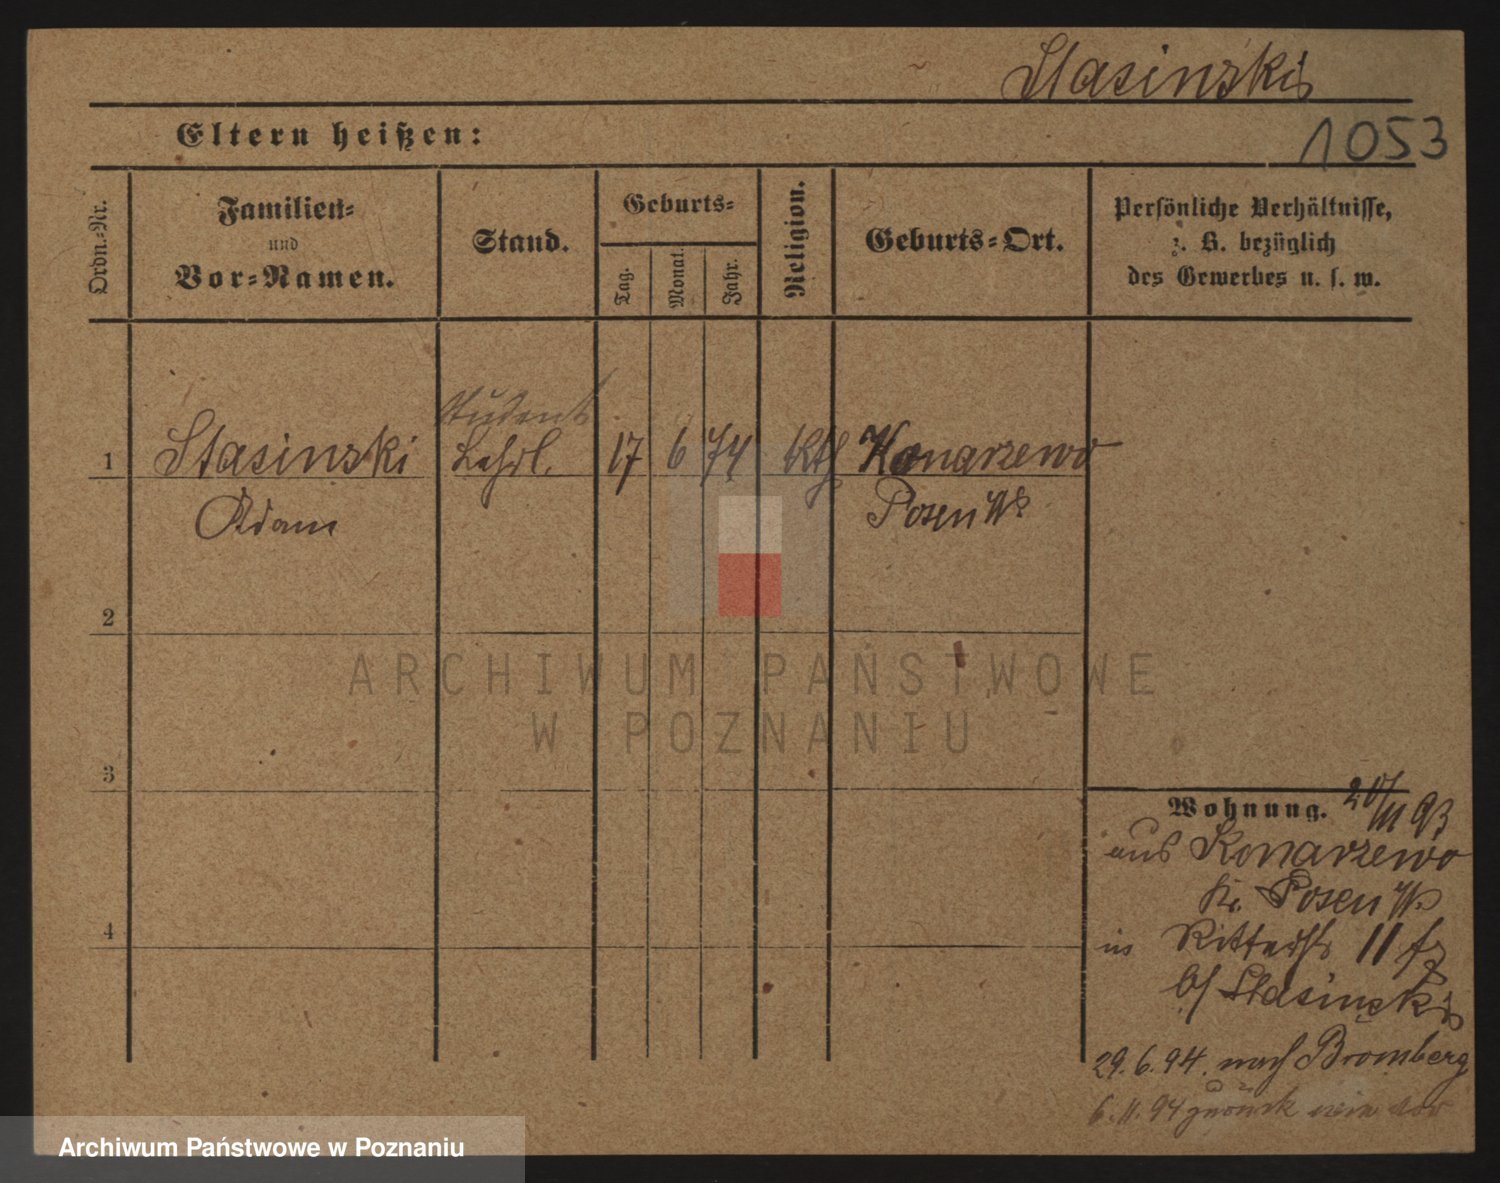 Stasinski
1053
Eltern heißen:
Ordn.-Nr.
Familien-
und
Vor-Namen.
Stand.
Geburts-
Tag.
Monat.
Jahr.
Religion.
Geburts-Ort.
Persönliche Verhältnisse,
z. B. bezüglich
des Gewerbes u. s. w.
Student
1 Stasinski Lehrl. 17 6 74 kth Konarzewo
Adam Posen W
2
3
4
Wohnung. 20/11 93
aus Konarzewo
Kr. Posen W
in Ritterstr 11
b/ Stasinski
29. 6. 94. nach Bromberg
6. 11. 94 zurück wie vor
ARCHIWUM PAŃSTWOWE
W POZNANIU
Archiwum Państwowe w Poznaniu